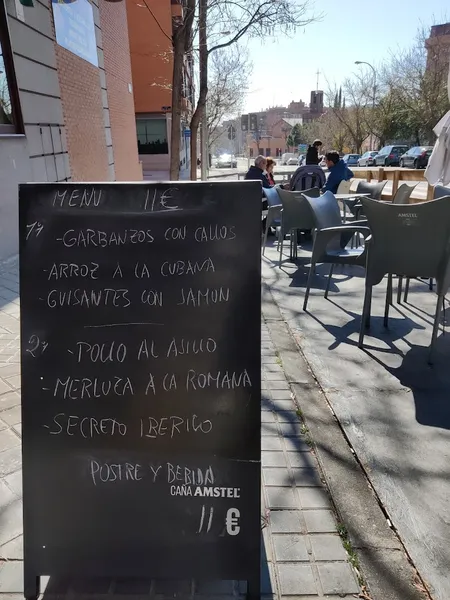 MENU 11€
1º -GARBANZOS CON CALLOS
-ARROZ A LA CUBANA
-GUISANTES CON JAMON
2º -POLLO AL AJILLO
-MERLUZA A LA ROMANA
-SECRETO IBERICO
POSTRE Y BEBIDA
CAÑA AMSTEL
11 €
AMSTEL